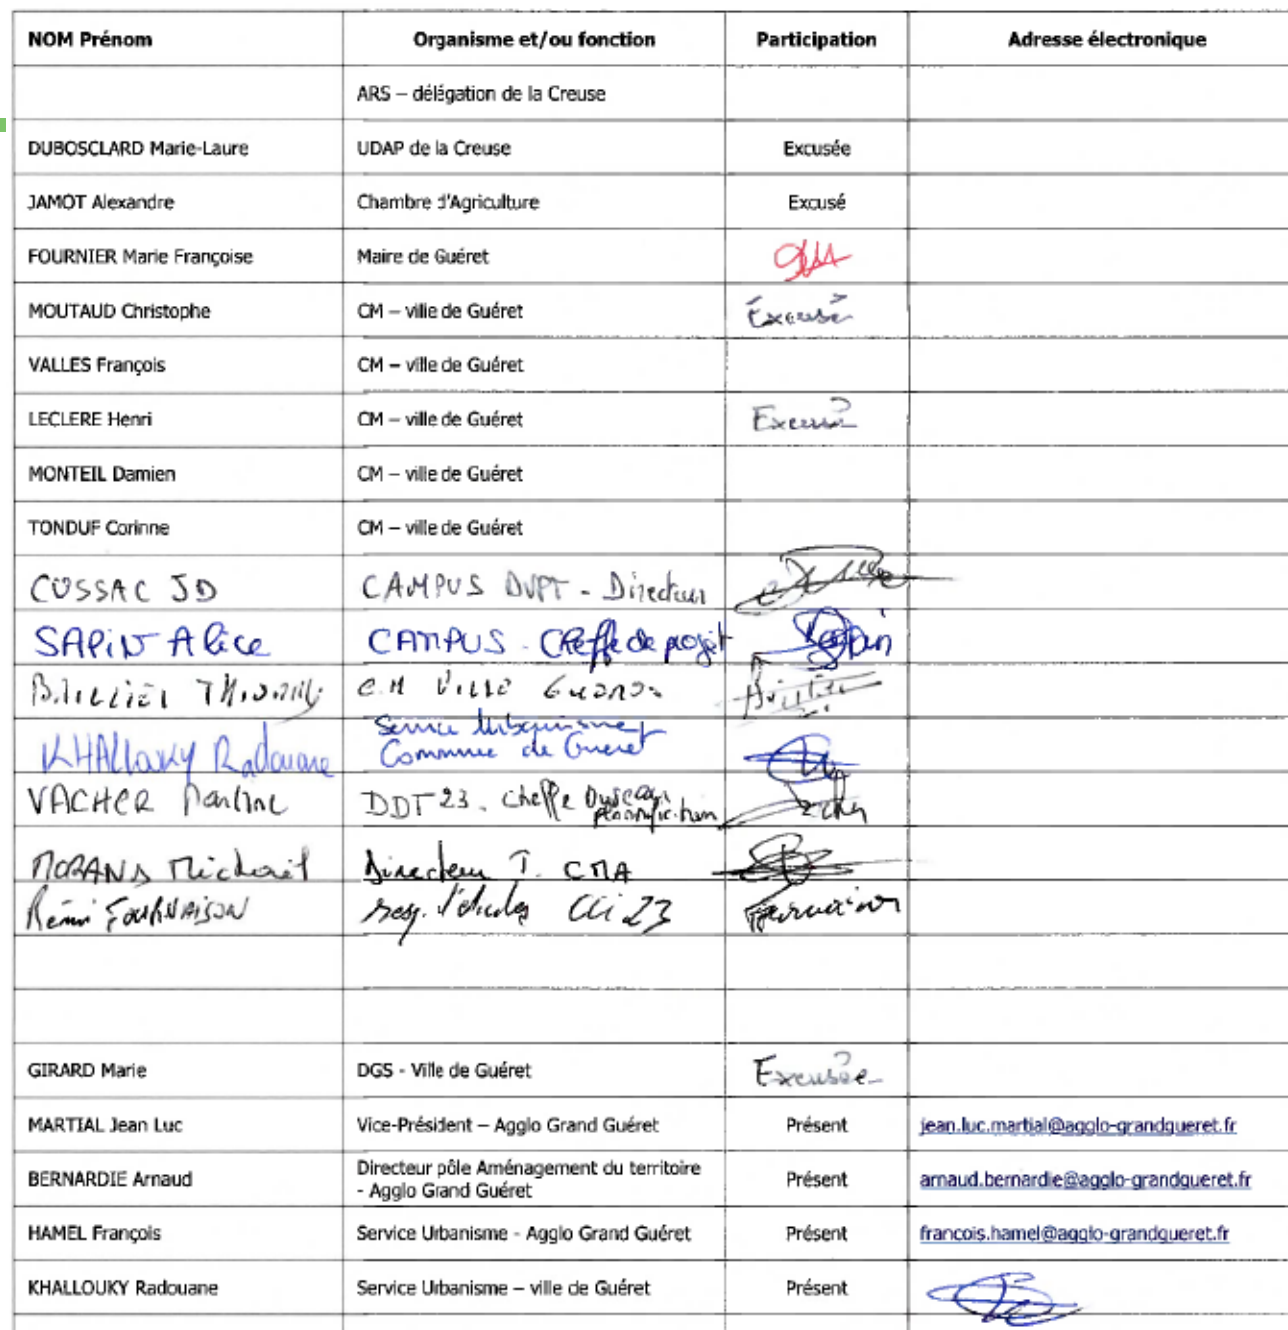 NOM Prénom Organisme et/ou fonction Participation Adresse électronique
ARS – délégation de la Creuse
DUBOSCLARD Marie-Laure UDAP de la Creuse Excusée
JAMOT Alexandre Chambre d'Agriculture Excusé
FOURNIER Marie Françoise Maire de Guéret
MOUTAUD Christophe CM – ville de Guéret Excusé
VALLES François CM – ville de Guéret
LECLERE Henri CM – ville de Guéret Excusé
MONTEIL Damien CM – ville de Guéret
TONDUF Corinne CM – ville de Guéret
CUSSAC JD CAMPUS DVPT - Directeur
SAPIN Alice CAMPUS - Cheffe de projet Sapin
C.M VILLE
Service Urbanisme
KHALLOUKY Radouane Commune de Guéret
VACHER DDT 23. Cheffe
planification
MORAND Michaël Directeur T. CMA
Rémi FOURNAISON resp. d'études CCi 23 Fournaison
GIRARD Marie DGS - Ville de Guéret Excusée
MARTIAL Jean Luc Vice-Président – Agglo Grand Guéret Présent jean.luc.martial@agglo-grandgueret.fr
Directeur pôle Aménagement du territoire
BERNARDIE Arnaud - Agglo Grand Guéret Présent arnaud.bernardie@agglo-grandgueret.fr
HAMEL François Service Urbanisme - Agglo Grand Guéret Présent francois.hamel@agglo-grandgueret.fr
KHALLOUKY Radouane Service Urbanisme – ville de Guéret Présent